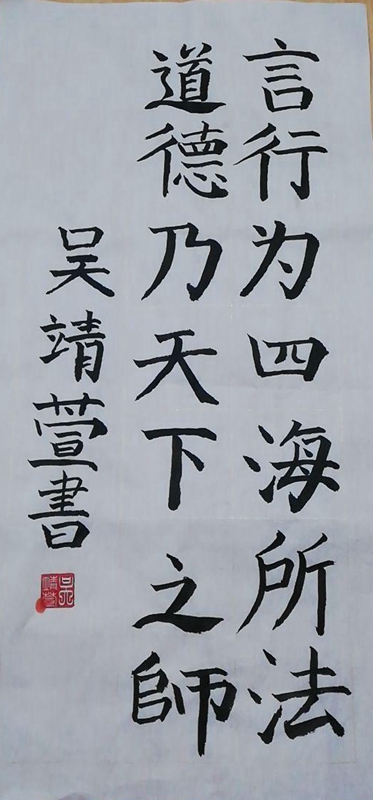 言行为四海所法
道德乃天下之師
吴靖萱書
吴靖萱